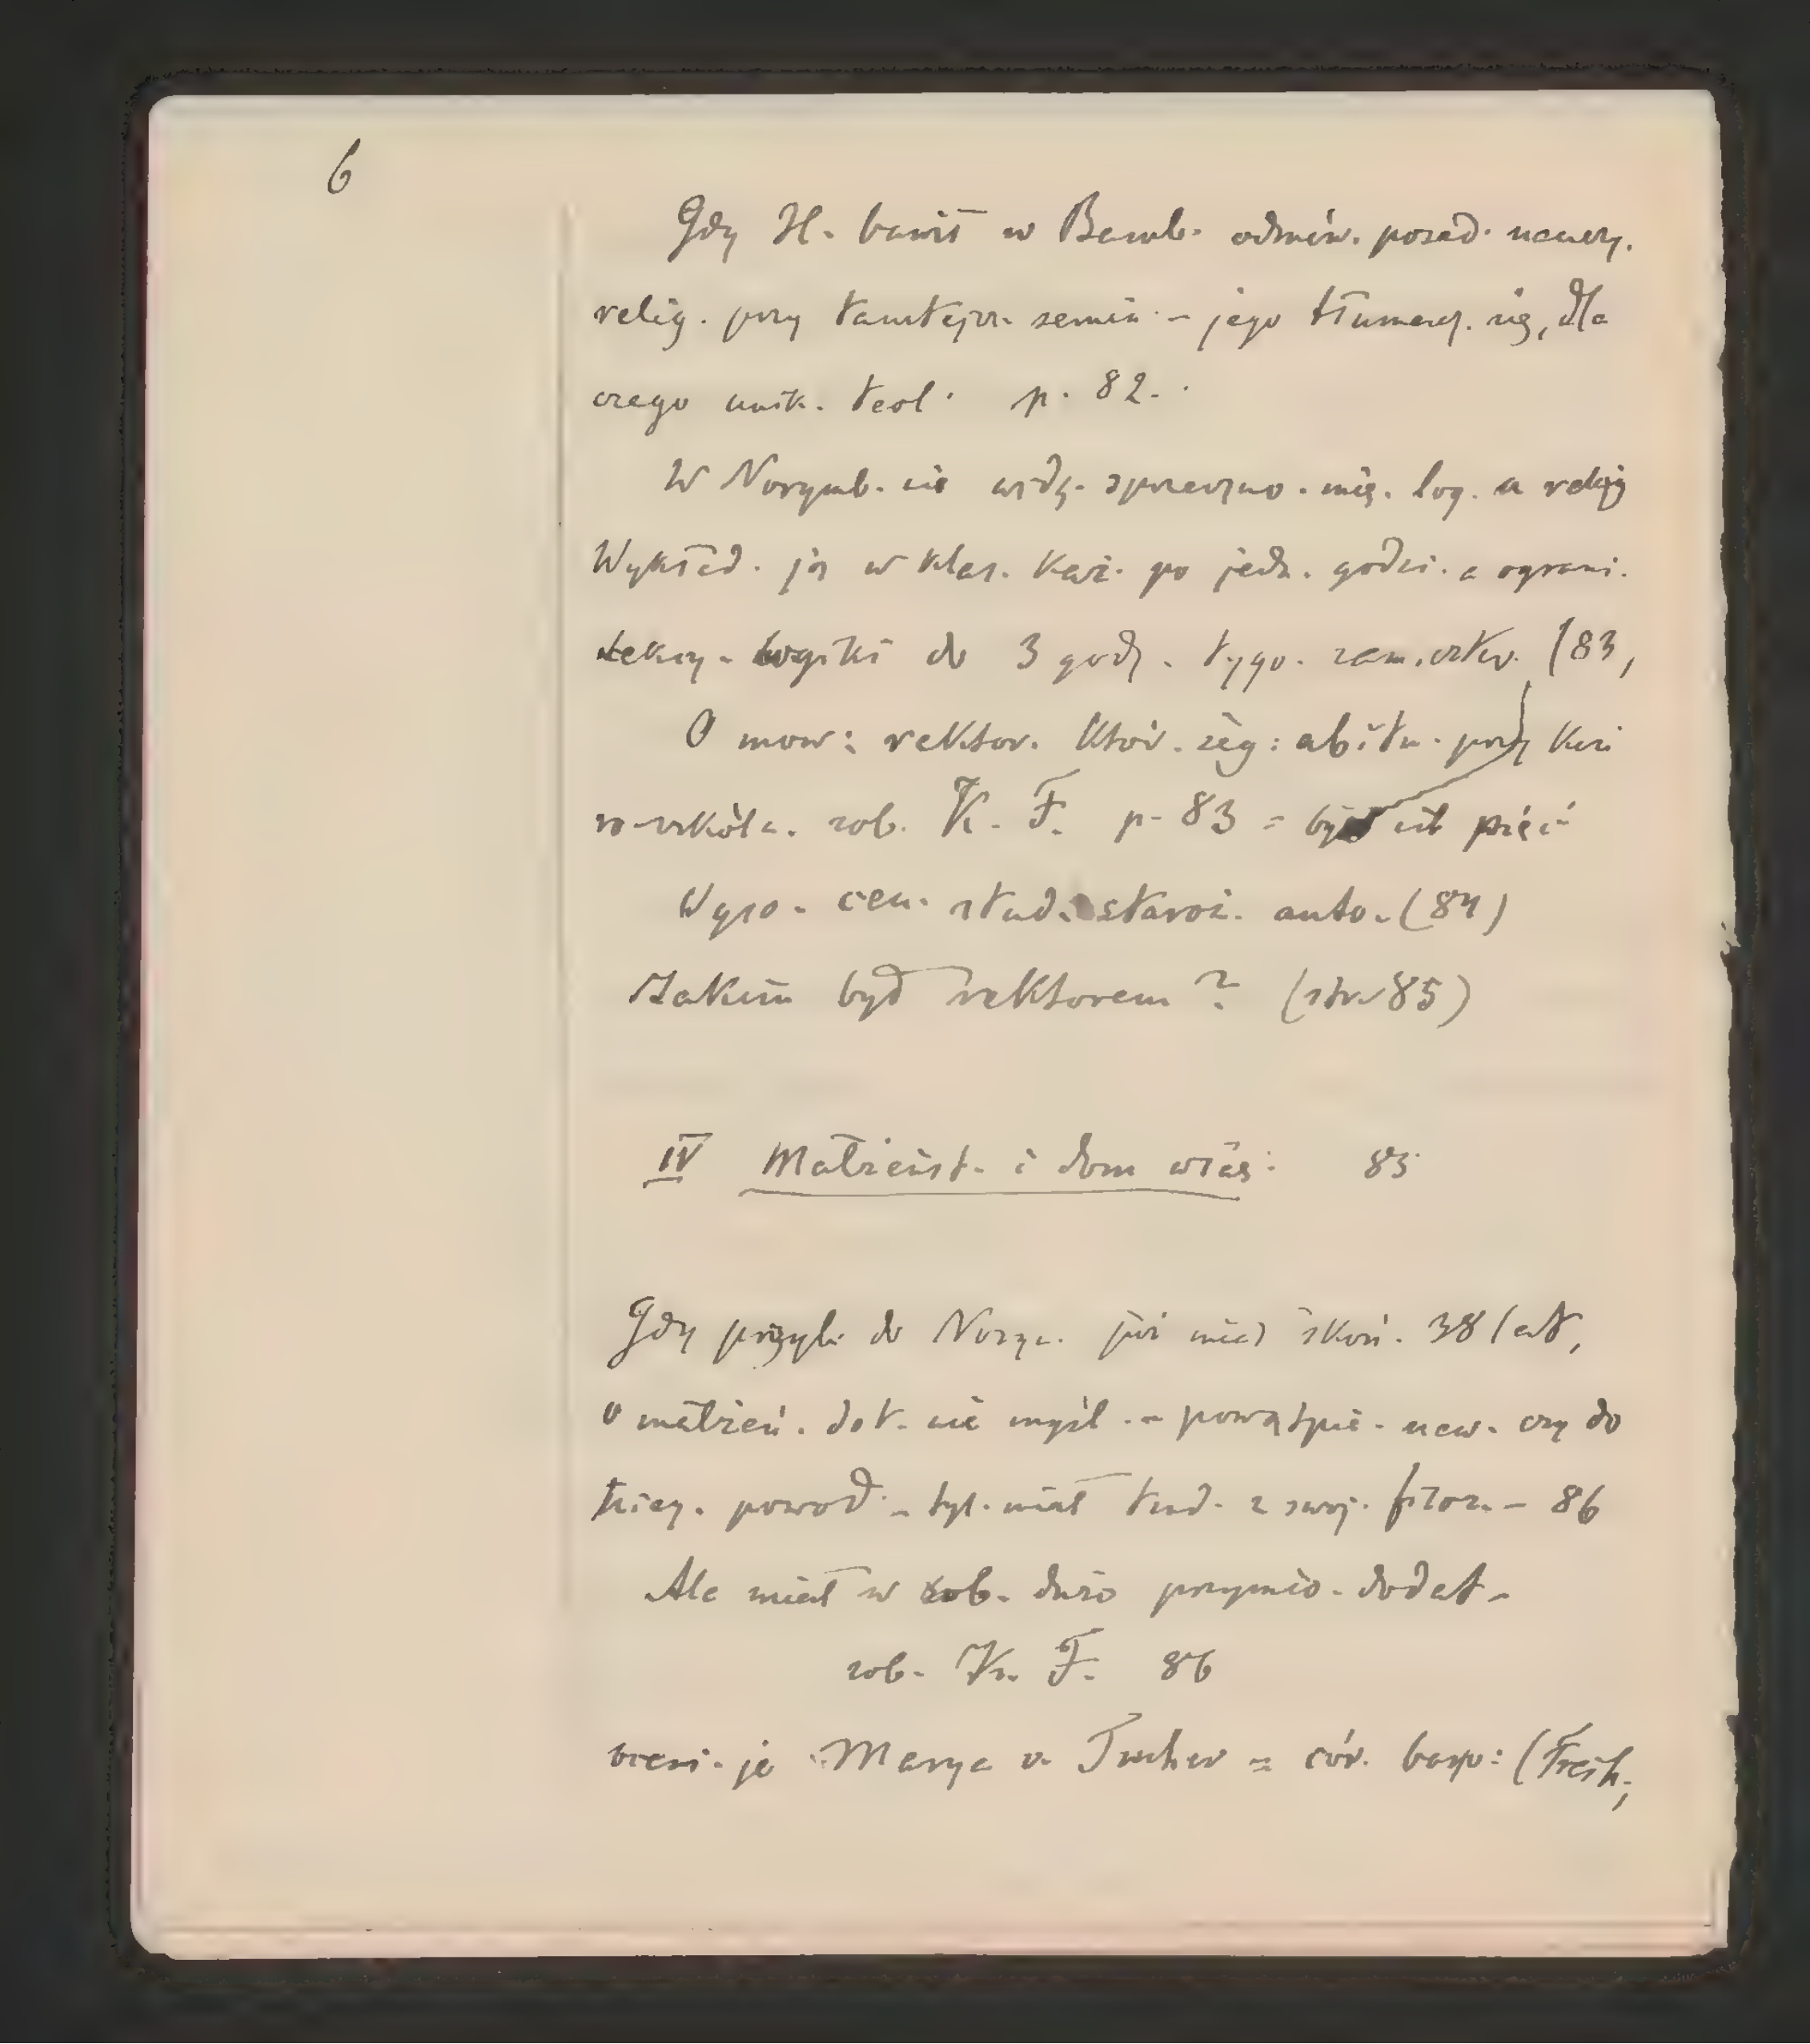 6
Gdy H. bawił w Bamb. odmów. posad. nauczy.
relig. przy tamtejsz. semin. – jego tłumacz. się, dla
czego unik. teol. p. 82.
W Norymb. nie widz. sprzeczno. mię. log. a relig
Wykład. ją w klas. każ. po jedn. godzi. a ograni.
lekcy. logiki do 3 godz. tygo. zam. (83,
O mow: rektor. któr. żeg: abitu. przy
szkoln. zob. K. F. p. 83 = pięć
Wyso. cen. stud. staroż. auto. (84)
Jakim był rektorem? (str. 85)
IV Małżeńst. i dom włas: 85
Gdy przyb. do Norym. już miał skoń. 38 lat,
o małżeń. dot. nie myśl. – powątpie. naw. czy do
niej. powod. – tyl. miał trud. z swoj. filoz. – 86
Ale miał w sob. dużo przymio. dodat.
zob. K. F. 86
oceni. je Marya v. Tucher = cór. (Freih.,